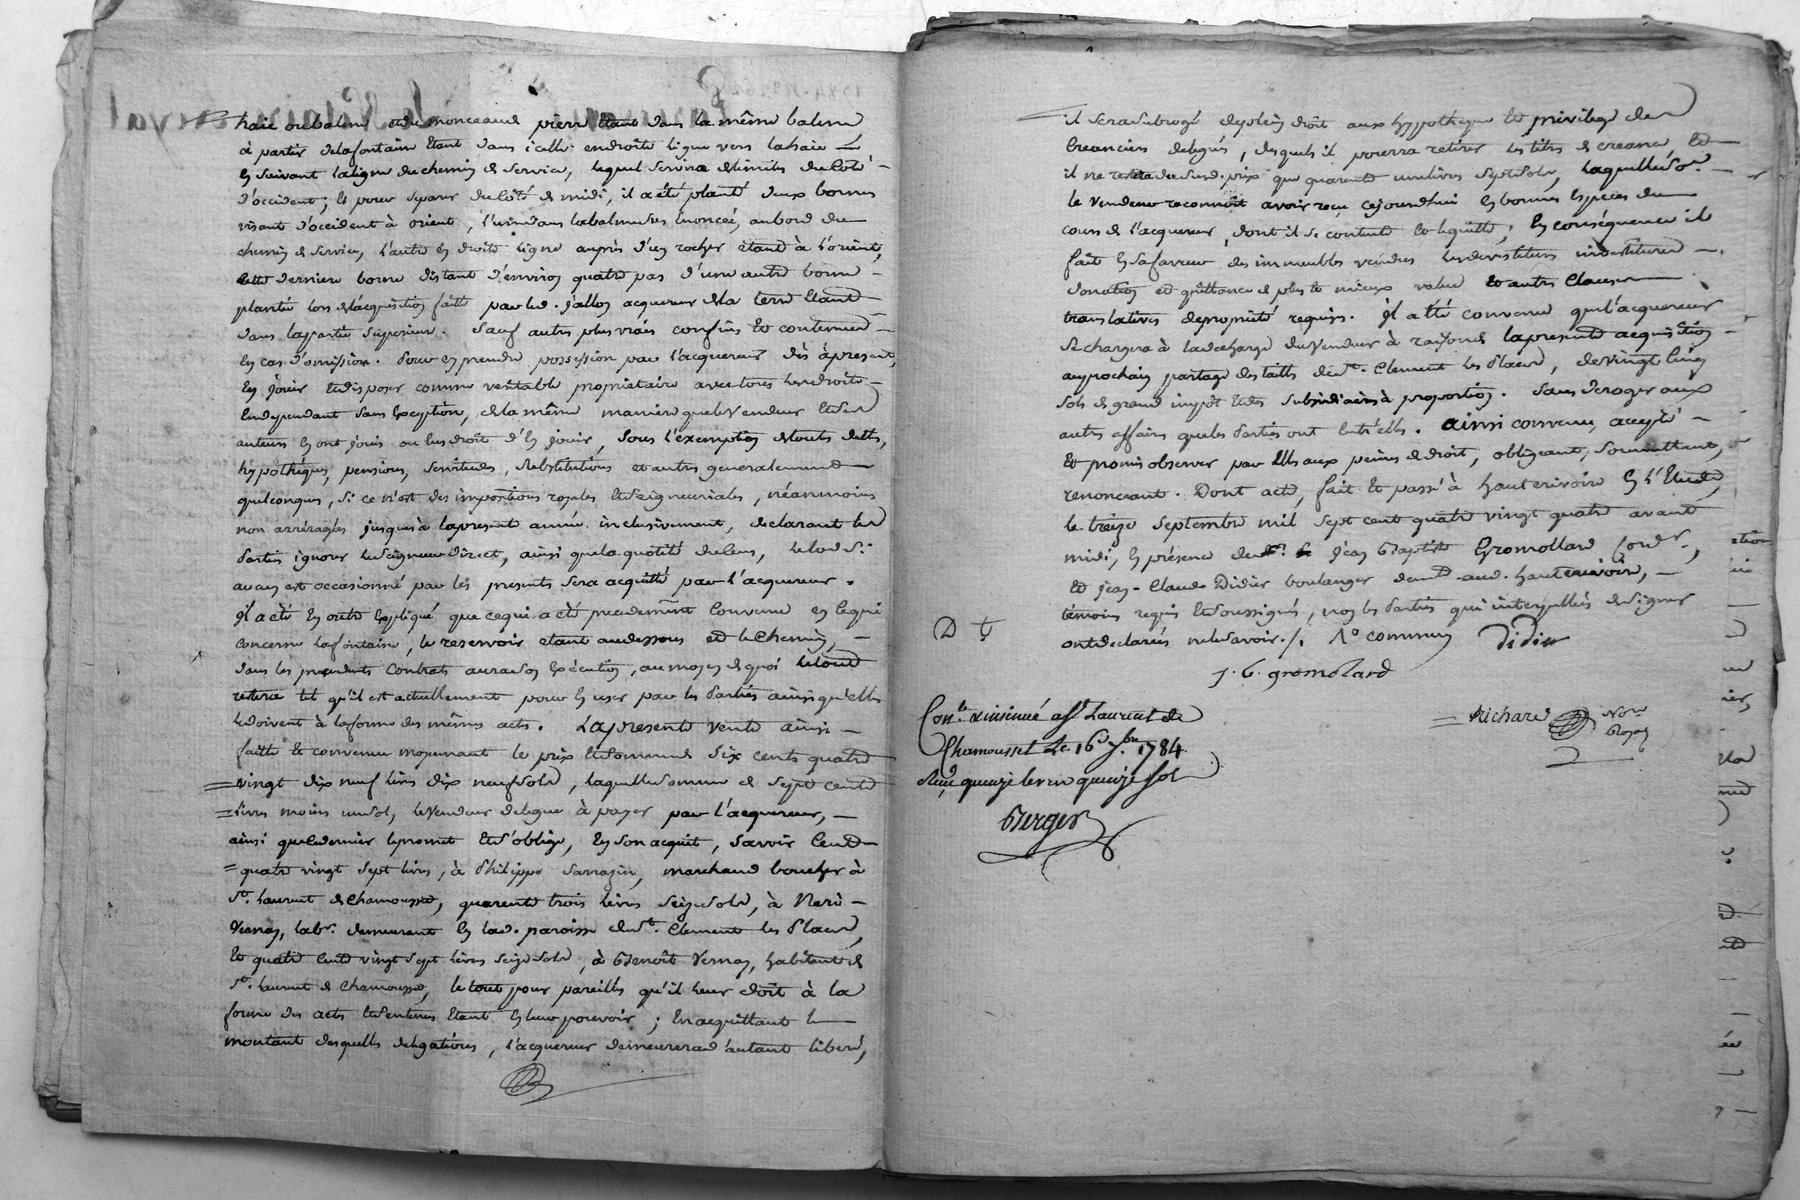 haie ou balme et du monceau de pierre étant dans la même balme
à partir de la fontaine étant dans icelle endroite ligne vers la haie
en suivant la ligne du chemin de service, lequel servira de limites du côté
d'occident; et pour séparer du côté de midi, il a été planté deux bornes
visant d'occident à orient, l'une dans la balme susénoncée, au bord du
chemin de service, l'autre en droite ligne auprès d'un rocher étant à l'orient,
cette derniere borne distant d'environ quatre pas d'une autre borne
plantée lors de l'acquisition faitte par led. jallon acquereur de la terre étant
dans la partie supérieure. Sauf autres plus vrais confins et contenue
en cas d'omission. Pour en prendre possession par l'acquereur dès àprésent,
en jouir et disposer comme veritable proprietaire avec tous les droits
en dependant sans exception, de la même maniere que le vendeur et ses
auteurs en ont joui ou eu droit d'en jouir, sous l'exemption de touts dettes,
hypothéques, pensions, servitudes, substitutions et autres generalement
quelconques, si ce n'est des impositions royales et seigneuriales, néanmoins
non arréragées jusques à la present année inclusivement, declarant les
parties ignorer le seigneur direct, ainsi que la quotité du cens, le lod si
aucun est occasionné par les presents sera acquitté par l'acquereur.
Il a été en outre expliqué que ce qui a été precedemment convenu en ce qui
concerne la fontaine, le reservoir étant au dessous et le chemin,
dans les precedents contrats aura son exécution, au moyen de quoi le tout
restera tel qu'il est actuellement pour en user par les parties ainsi qu'elles
le doivent à la forme des mêmes actes. La presente vente ainsi
faitte et convenue moyenant le prix et somme de six cents quatre
vingt dix neuf livres dix neuf sols, laquelle somme de sept cents
livres moins un sol, le vendeur delegue à payer par l'acquereur,
ainsi que le dernier le promet et s'oblige, en son acquit, savoir cent
quatre vingt sept livres, à Philippe Sarrazin, marchand boucher à
St. Laurent de Chamousset, quarente trois livres seize sols, à
Vernay, labr. demeurant en lad. paroisse de St. Clement les Places,
et quatre cents vingt sept livres seize sols, à Benoît Vernay, habitant de
St. Laurent de Chamousset, le tout pour pareilles qu'il leur doit à la
forme des actes et sentences étant en leur pouvoir; en acquittant le
montant desquelles delegations, l'acquereur demeurera d'autant liberé,
il sera subrogé de plein droit aux hypotheques et privileges des
créanciers delegués, desquels il pourra retirer les titres de creance et
il ne restera dususd. prix que quarante un livres sept sols, laquelle so.e
le vendeur reconnoit avoir reçu cejourdhui en bonnes especes du
cours de l'acquereur, dont il se contente et le quitte; en conséquence il
fait en sa faveur des immeubles vendus les devestiture investiture
donation et quittance de plus et mieux value et autres clauses
translatives de propriété requises. Il a été convenu que l'acquereur
se chargera à la decharge du vendeur à raison de la presente acquisition
au prochain partage des tailles de St. Clement les Places, de vingt cinq
sols de grand impôt et des subsidiaires à proportion. Sans deroger aux
autres affaires que les parties ont entr'elles. Ainsi convenu, accepté
et promis observer par elles aux peines de droit, obligeant, soumettant,
renonceant. Dont acte, fait et passé à hauterivoire en l'etude,
le treize septembre mil sept cent quatre vingt quatre avant
midi, en présence de Jean Baptiste Gromollard
et Jean-Claude Didier boulanger demt. aud. hauterivoire,
témoins requis et soussignés, non les parties qui interpellées de signer
ont declarées ne le savoir./. 1° commun Didier
D t
J. B. gromolard
Con.lé et insinué a St Laurent de
Chamousset Le 16 7.bre 1784
Reçu quinze livres quinze sols
Berger
Richard Nore
Royal